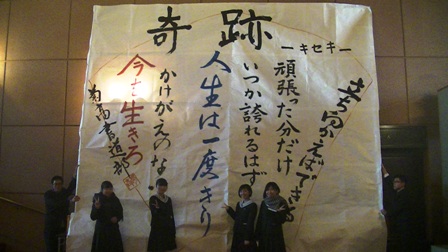 奇跡
ーキセキー
立ち向かえばできる
頑張った分だけ
いつか誇れるはず
人生は一度きり
かけがえのない
今を生きろ
高書道部